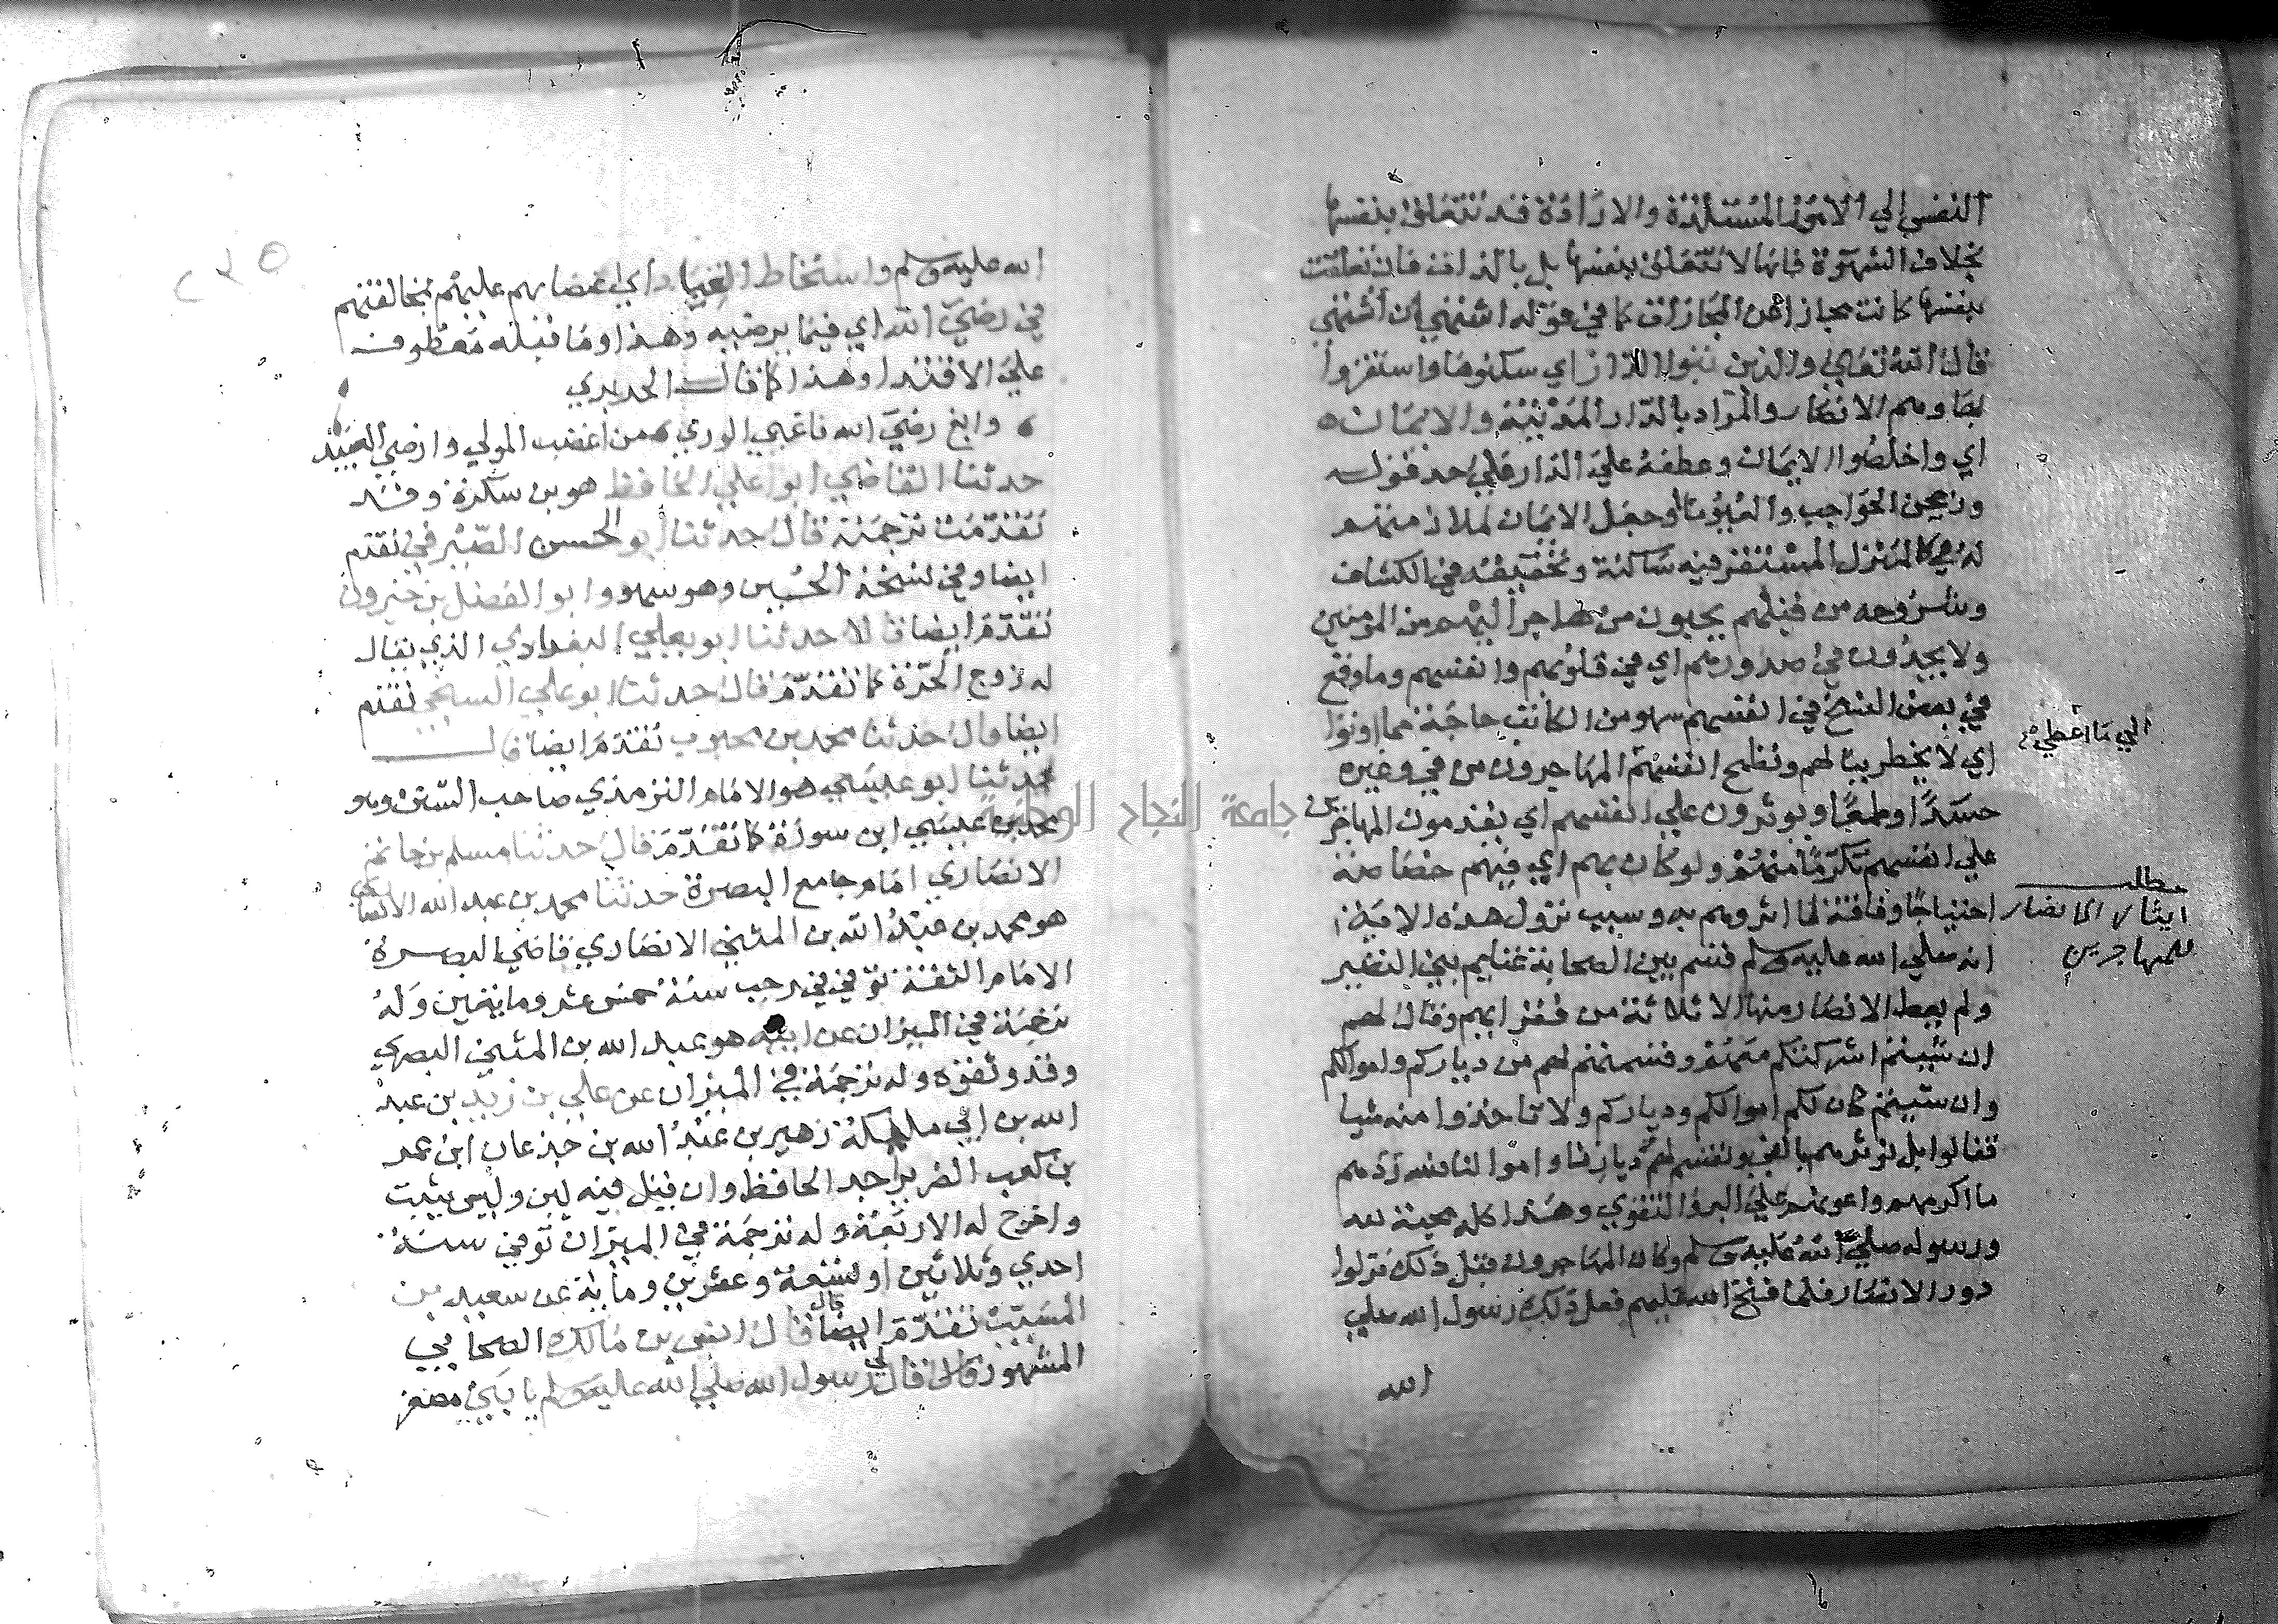 النفس إلي الامور المستلذة والارادة قد تتعلق بنفسها
بخلاف الشهوة فانها لا تتعلق بنفسها بل بالذات فان تعلقت
بنفسها كانت مجازا عن المجازات كما في قوله اشتهي ان اشتهي
قال الله تعالي والذين تبوا الدار اي سكنوها واستقروا
بها وهم الانصار والمراد بالدار المدينة والايمان
اي واخلصوا الايمان وعطفه علي الدار علي حد قوله
وزججن الحواجب والعيونا او جعل الايمان لملازمتهم
له كالمنزل المستقر فيه ساكنه وتحقيقه في الكشاف
وشروحه من قبلهم يحبون من هاجر اليهم من المؤمنين
ولا يجدون في صدورهم اي في قلوبهم وانفسهم وما وقع
في بعض النسخ في انفسهم سهو من الكاتب حاجة مما اوتوا
اي لا يخطر ببالهم وتطمح انفسهم المهاجرون من في وغيره
الي ما اعطي
حسدا وطمعا ويوثرون علي انفسهم اي يقدمون المهاجرين
علي انفسهم تكرما منهم ولو كان بهم اي فيهم خصاصة
احتياجا وفاقة لما اثروهم به وسبب نزول هذه الاية
مطلب
ايثار الانصار
للمهاجرين
انه صلي الله عليه وسلم قسم بين الصحابة غنايم بني النضير
ولم يعط الانصار منها الا ثلاثة من فقرايهم وقال لهم
ان شيتم اشركتكم معهم وقسمتم لهم من دياركم واموالكم
وان شيتم كان لكم اموالكم ودياركم ولا تاخذوا منه شيا
فقالوا بل نوثرهم بالفي ونقسم لهم ديارنا واموالنا
ما اكرمهم واعونهم علي البر والتقوي وهذا كله محبة لله
ورسوله صلي الله عليه وسلم وكان المهاجرون قبل ذلك نزلوا
دور الانصار فلما فتح الله عليهم فعل ذلك رسول الله صلي
الله
٢٣٥
الله عليه وسلم واستخاط العباد اي اغضابهم عليهم بمخالفتهم
في رضي الله اي فيما يرضيه وهذا وما قبله معطوف
علي الاقتدا وهذا كما قال الحريري
وابغ رضي الله فاغبي الوري من اغضب المولي وارضي العبيد
حدثنا القاضي ابو علي الحافظ هو بن سكرة وقد
تقدمت ترجمته قال حدثنا ابو الحسين الصيرفي تقدم
ايضا وفي نسخة الحسين وهو سهو وابو الفضل بن خيرون
تقدم ايضا قالا حدثنا ابو يعلي البغدادي الذي يقال
له زوج الحرة كما تقدم قال حدثنا ابو علي السنجي تقدم
ايضا قال حدثنا محمد بن محبوب تقدم ايضا قال
حدثنا ابو عيسي هو الامام الترمذي صاحب السنن وهو
محمد بن عيسي ابن سورة كما تقدم قال حدثنا مسلم بن حاتم
الانصاري امام جامع البصرة حدثنا محمد بن عبد الله الانصاري
هو محمد بن عبد الله بن المثني الانصاري قاضي البصرة
الامام الثقة توفي في رجب سنة خمس عشر ومايتين وله
ترجمة في الميزان عن ابيه هو عبد الله بن المثني البصري
وقد وثقوه وله ترجمة في الميزان عن علي بن زيد بن عبد
الله بن ابي مليكة زهير بن عبد الله بن جدعان ابن عمر
بن كعب الضرير احد الحافظ وان قيل فيه لين وليس بثبت
واخرج له الاربعة وله ترجمة في الميزان توفي سنة
احدي وثلاثين او تسعة وعشرين وماية عن سعيد بن
المسيب تقدم ايضا قال قال انس بن مالك الصحابي
المشهور قال قال لي رسول الله صلي الله عليه وسلم يا بني مصغر
جامعة النجاح الوطنية